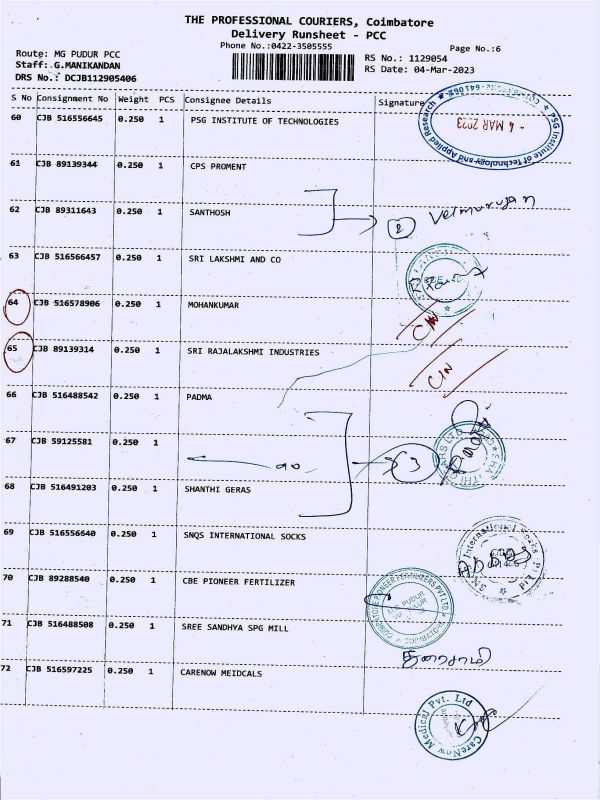 THE PROFESSIONAL COURIERS, Coimbatore
Delivery Runsheet - PCC
Phone No.:0422-3505555
Page No.:6
Route: MG PUDUR PCC
Staff: G.MANIKANDAN
DRS No.: DCJB112905406
RS No.: 1129054
RS Date: 04-Mar-2023
S No Consignment No Weight PCS Consignee Details Signature
PSG Institute of Technology and Applied Research
- 4 MAR 2023
60 CJB 516556645 0.250 1 PSG INSTITUTE OF TECHNOLOGIES
61 CJB 89139344 0.250 1 CPS PROMENT
62 CJB 89311643 0.250 1 SANTHOSH
2
63 CJB 516566457 0.250 1 SRI LAKSHMI AND CO
64 CJB 516578906 0.250 1 MOHANKUMAR
C/N
65 CJB 89139314 0.250 1 SRI RAJALAKSHMI INDUSTRIES
C/N
66 CJB 516488542 0.250 1 PADMA
67 CJB 59125581 0.250 1
3
68 CJB 516491203 0.250 1 SHANTHI GERAS
69 CJB 516556640 0.250 1 SNQS INTERNATIONAL SOCKS
70 CJB 89288540 0.250 1 CBE PIONEER FERTILIZER
71 CJB 516488508 0.250 1 SREE SANDHYA SPG MILL
72 CJB 516597225 0.250 1 CARENOW MEIDCALS
CareNow Medical Pvt. Ltd